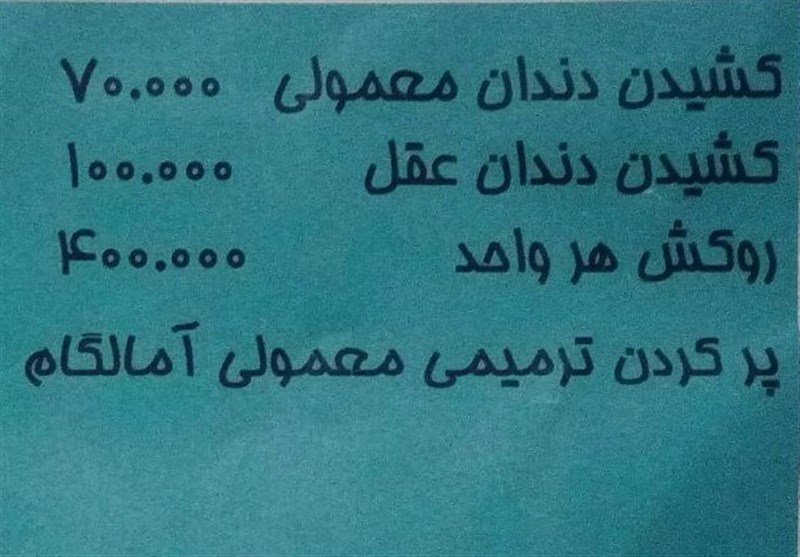 کشیدن دندان معمولی ۷۰.۰۰۰
کشیدن دندان عقل ۱۰۰.۰۰۰
روکش هر واحد ۴۰۰.۰۰۰
پر کردن ترمیمی معمولی آمالگام